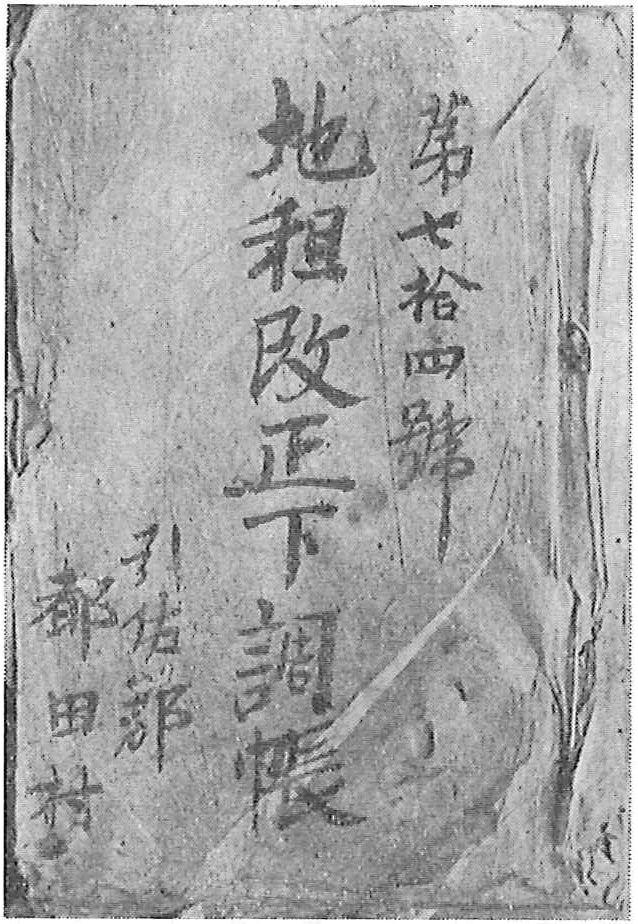 第七拾四號
地租改正下調帳
引佐郡
都田村